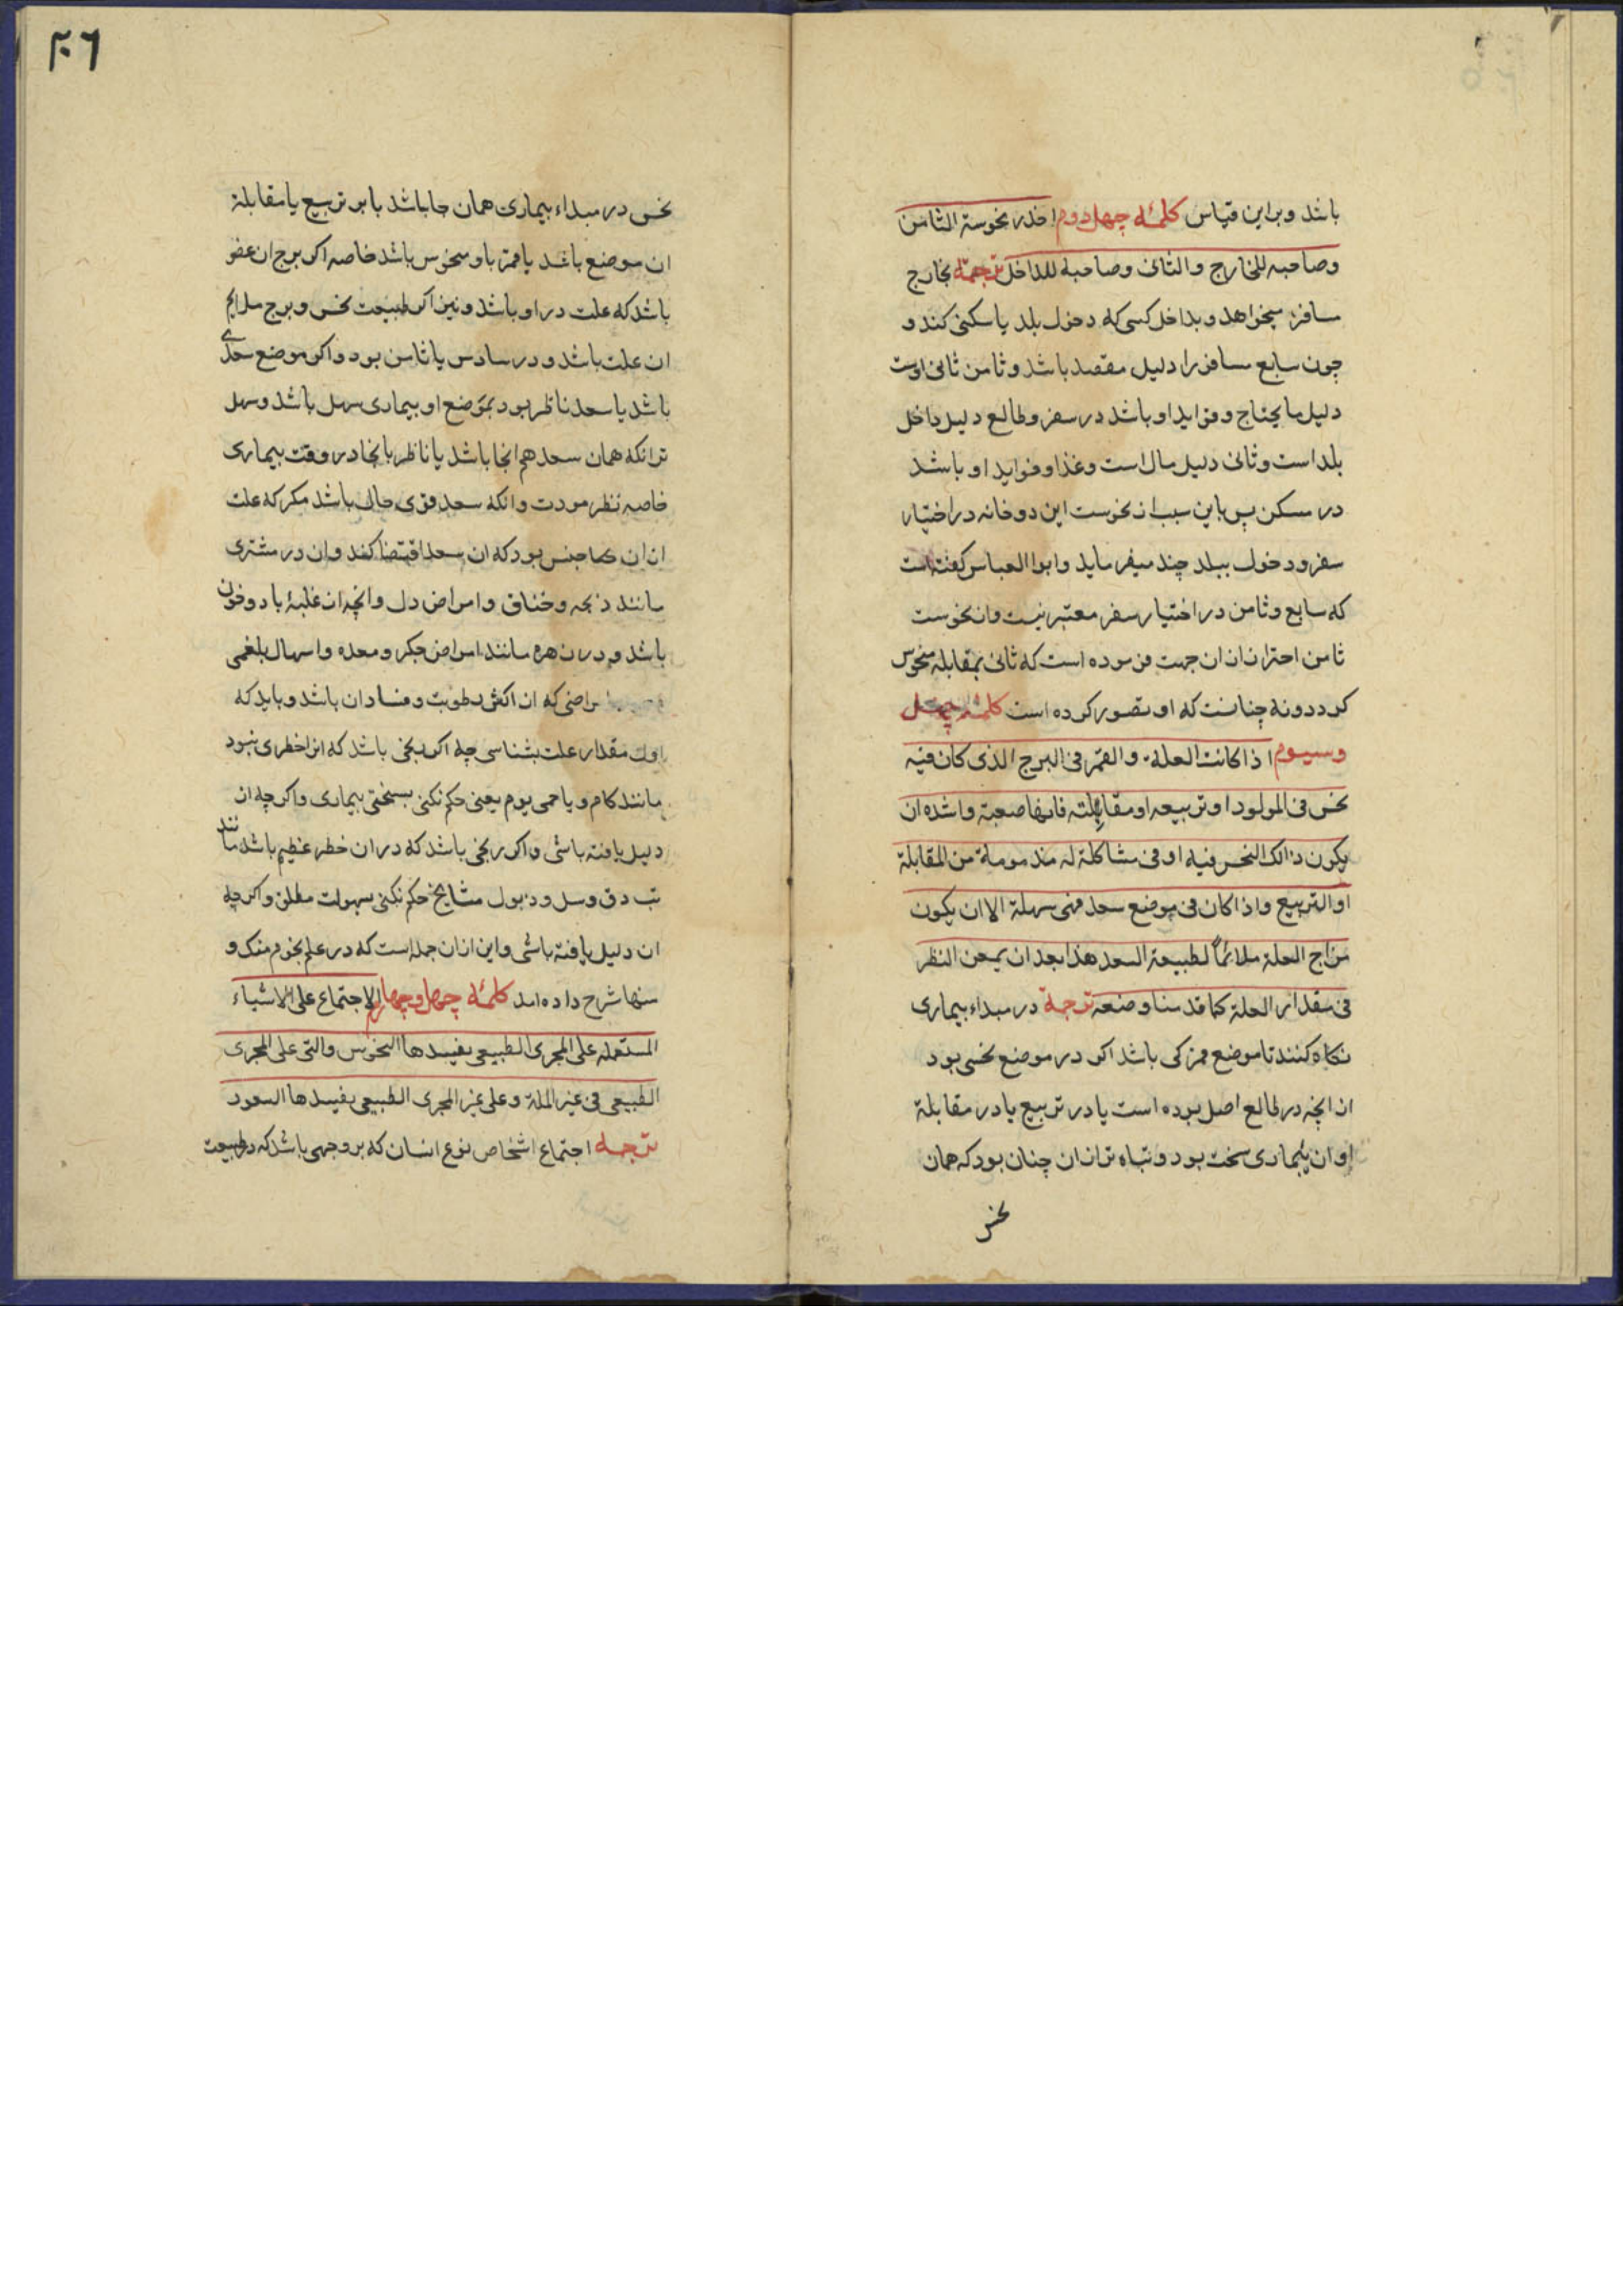 باشد و براین قیاس کلمهٔ چهل دوم احذر نحوسة الثامن
وصاحبه للخارج والثانی وصاحبه للداخل ترجمه بخارج
مسافر میخواهد و بداخل کسی که دخول بلد یا سکنی کند و
چون سابع مسافر را دلیل مقصد باشد و ثامن ثانی اوست
دلیل مایحتاج و فواید او باشد در سفر و طالع دلیل داخل
بلد است و ثانی دلیل مال است و غذا و فواید او باشد
در مسکن پس باین سبب از نحوست این دو خانه در اختیار
سفر و دخول ببلد حذر میفرماید و ابوالعباس کفته است
که سابع و ثامن در اختیار سفر معتبر نیست و از نحوست
ثامن احتراز از ان جهت فرموده است که ثانی بمقابله منحوس
کردد و نه چنانست که او تصور کرده است کلمهٔ چهل
وسیوم اذا کانت العلة والقمر فی البرج الذی کان فیه
نحس فی المولود او تربیعه او مقابلته فانها صعبة واشده ان
یکون ذالک النحس فیه او فی مشاکلة له مذمومة من المقابلة
او التربیع واذا کان فی موضع سعد فهی سهلة الا ان یکون
مزاج العلة ملائماً لطبیعة السعد هذا بعد ان یمعن النظر
فی مقدار العلة کما قدمنا وضعه ترجمة در مبداء بیماری
نکاه کنند تا موضع قمر کی باشد اکر در موضع نحسی بود
از انچه در طالع اصل بوده است یا در تربیع یا در مقابلة
او ان بیماری سخت بود و تباه تر از ان چنان بود که همان
نحس
۲۰۶
نحس در مبداء بیماری همان جا باشد یا بر تربیع یا مقابلة
ان موضع باشد یا قمر باو منحوس باشد خاصه اکر برج ان عضو
باشد که علت در او باشد و نیز اکر طبیعت نحس و برج ملایم
ان علت باشد و در سادس یا ثامن بود و اکر موضع سعدی
باشد یا سعد ناظر بود بموضع او بیماری سهل باشد و سهل
تر انکه همان سعد هم انجا باشد یا ناظر بانجا در وقت بیماری
خاصه نظر مودت و انکه سعد قوی حال باشد مکر که علت
از ان جنس بود که ان سعد اقتضا کند وان در مشتری
مانند ذبحه و خناق و امراض دل وانچه از غلبهٔ باد و خون
باشد و در زهره مانند امراض جکر و معده و اسهال بلغمی
امراضی که ان اکثر رطوبت و فساد ان باشد و باید که
اول مقدار علت بشناسی چه اکر رنجی باشد که انرا خطری نبود
مانند زکام و یا حمی یوم یعنی حکم نکنی بسختی بیماری و اکرچه ان
دلیل یافته باشی و اکر رنجی باشد که در ان خطر عظیم باشد مانند
تب دق و سل و ذبول مشایخ حکم نکنی بسهولت مطلق و اکرچه
ان دلیل یافته باشی و این از ان جمله است که در علم نجوم منک و
منها شرح داده امد کلمهٔ چهل و چهارم الاجتماع علی الاشیاء
المستعمله علی المجری الطبیعی یفسدها النحوس والتی علی المجری
الطبیعی فی غیر الملة وعلی غیر المجری الطبیعی یفسدها السعود
ترجمه اجتماع اشخاص نوع انسان که بر وجهی باشد که در طبیعت